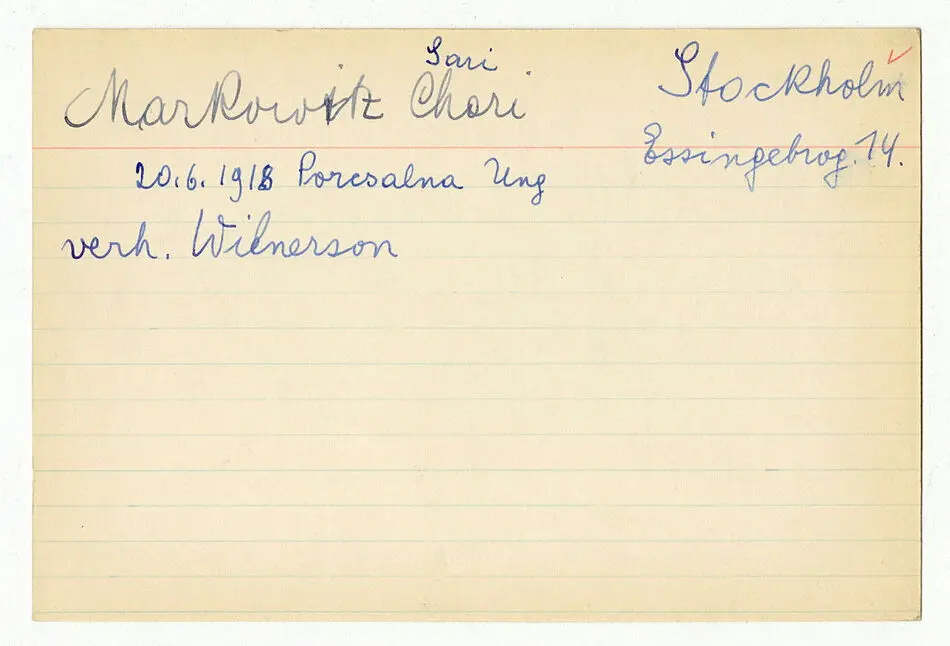 Sari
Markowitz Chari Stockholm
Essingebrog. 14.
20.6.1918 Porcsalna Ung
verh. Wilnerson